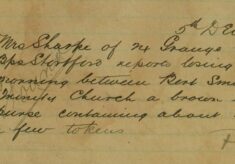 5th Dec
Mrs Sharpe of The Grange
Bps Stortford reports losing
morning between Bert Smi
Trinity Church a brown
purse containing about
a few tokens